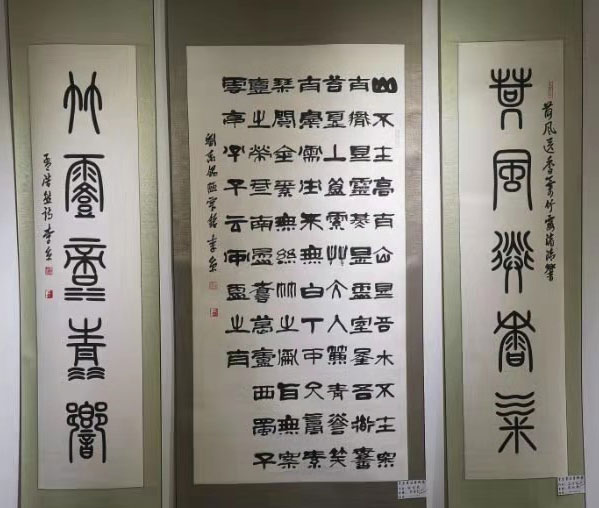 荷風送香氣
荷风送香气竹露滴清响
山不在高有仙是名水不在深
有龍是靈斯是陋室惟吾德馨
苔痕上階綠草色入簾青談笑
有鴻儒往來無白丁可以調素
琴閱金經無絲竹之亂耳無案
牘之勞形南陽諸葛廬西蜀子
雲亭孔子云何陋之有
劉禹錫陋室銘 李
竹露滴清響
孟浩然詩 李